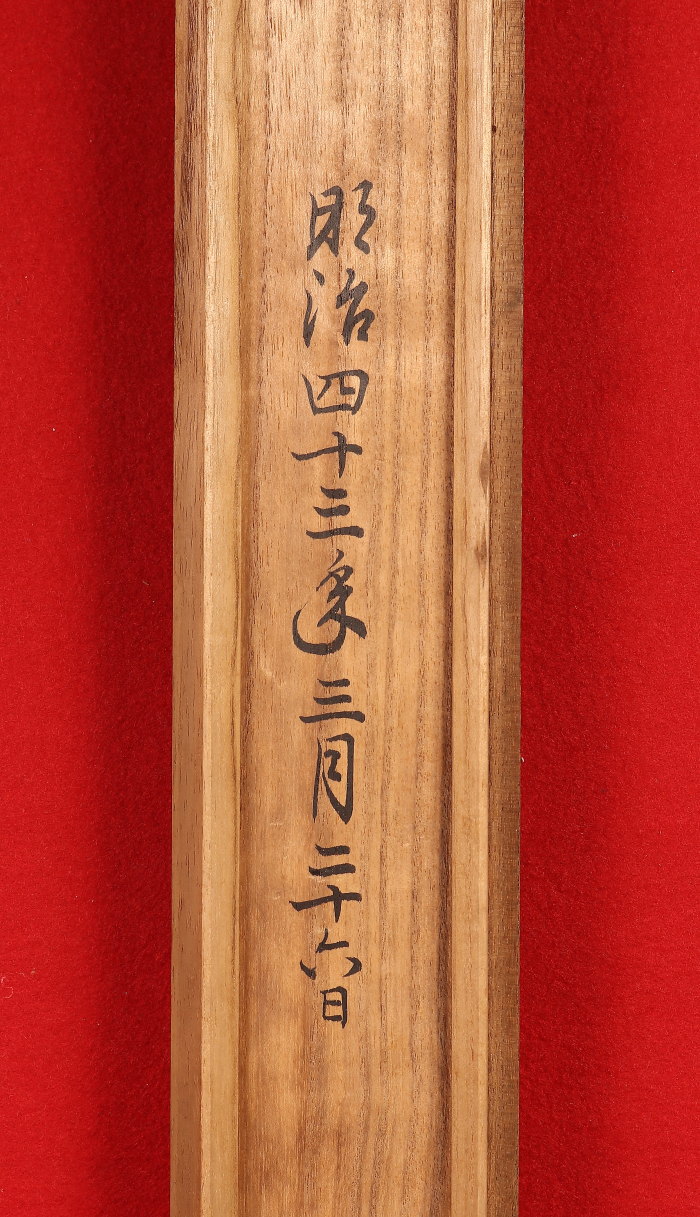 明治四十三年三月二十六日